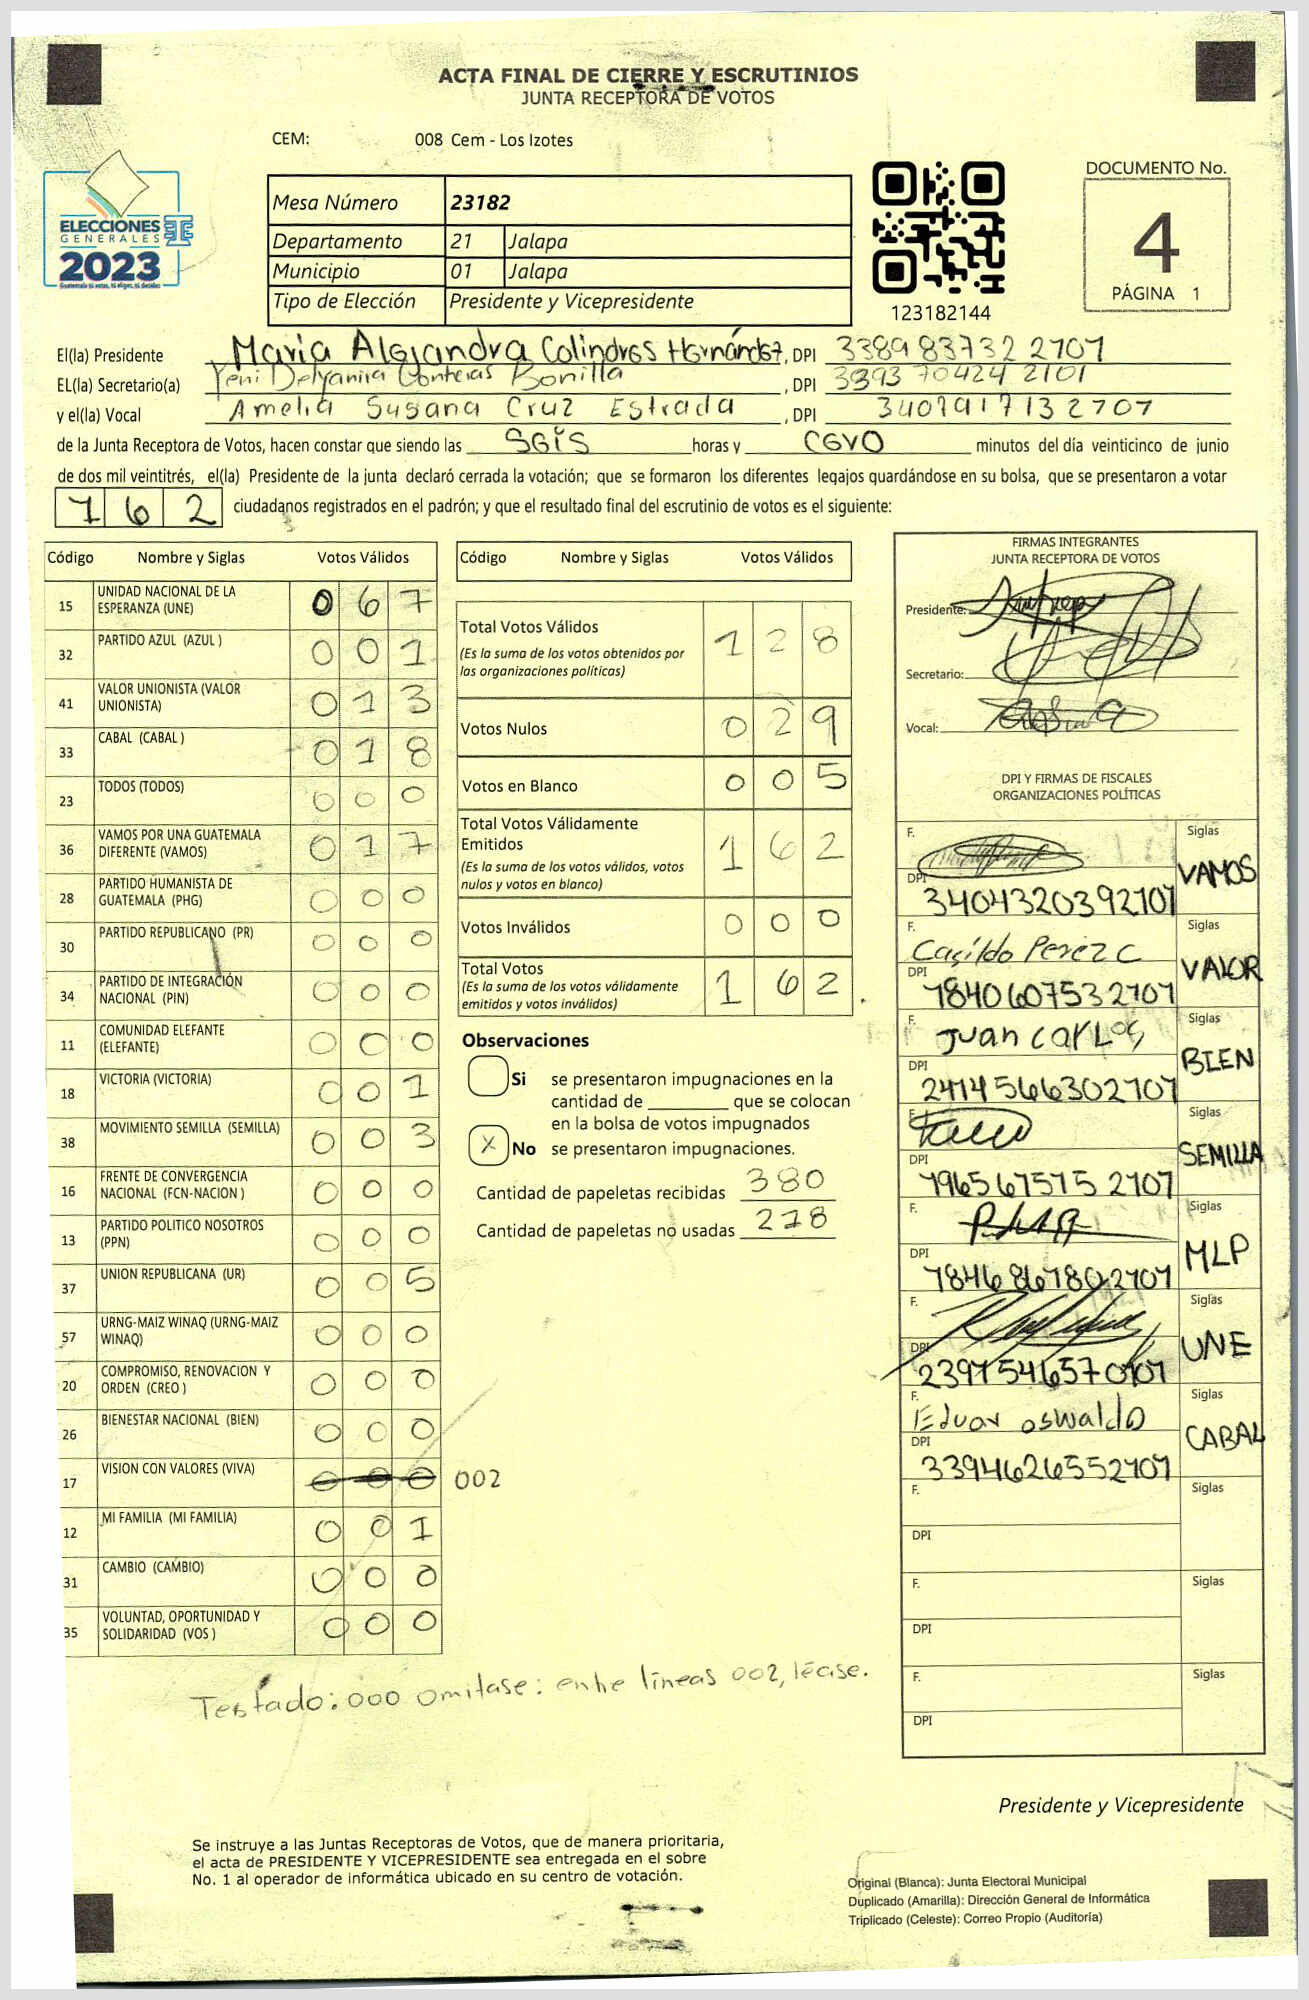 ACTA FINAL DE CIERRE Y ESCRUTINIOS
JUNTA RECEPTORA DE VOTOS
CEM: 008 Cem - Los Izotes
ELECCIONES
GENERALES
2023
Guatemala tú votas, tú eliges, tú decides
Mesa Número 23182
Departamento 21 Jalapa
Municipio 01 Jalapa
Tipo de Elección Presidente y Vicepresidente
123182144
DOCUMENTO No.
4
PÁGINA 1
El(la) Presidente Maria Alejandra Colindres Hernández, DPI 3389 83732 2707
EL(la) Secretario(a) Yeni Delyanira Conteras Bonilla, DPI 3393 70424 2101
y el(la) Vocal Amelia Susana Cruz Estrada, DPI 3407917132707
de la Junta Receptora de Votos, hacen constar que siendo las seis horas y cero minutos del día veinticinco de junio
de dos mil veintitrés, el(la) Presidente de la junta declaró cerrada la votación; que se formaron los diferentes legajos guardándose en su bolsa, que se presentaron a votar
162 ciudadanos registrados en el padrón; y que el resultado final del escrutinio de votos es el siguiente:
Código Nombre y Siglas Votos Válidos
15 UNIDAD NACIONAL DE LA ESPERANZA (UNE) 067
32 PARTIDO AZUL (AZUL ) 001
41 VALOR UNIONISTA (VALOR UNIONISTA) 013
33 CABAL (CABAL ) 018
23 TODOS (TODOS) 000
36 VAMOS POR UNA GUATEMALA DIFERENTE (VAMOS) 017
28 PARTIDO HUMANISTA DE GUATEMALA (PHG) 000
30 PARTIDO REPUBLICANO (PR) 000
34 PARTIDO DE INTEGRACIÓN NACIONAL (PIN) 000
11 COMUNIDAD ELEFANTE (ELEFANTE) 000
18 VICTORIA (VICTORIA) 001
38 MOVIMIENTO SEMILLA (SEMILLA) 003
16 FRENTE DE CONVERGENCIA NACIONAL (FCN-NACION ) 000
13 PARTIDO POLITICO NOSOTROS (PPN) 000
37 UNION REPUBLICANA (UR) 005
57 URNG-MAIZ WINAQ (URNG-MAIZ WINAQ) 000
20 COMPROMISO, RENOVACION Y ORDEN (CREO ) 000
26 BIENESTAR NACIONAL (BIEN) 000
17 VISION CON VALORES (VIVA) 000 002
12 MI FAMILIA (MI FAMILIA) 001
31 CAMBIO (CAMBIO) 000
35 VOLUNTAD, OPORTUNIDAD Y SOLIDARIDAD (VOS ) 000
Testado: 000 omitase: entre líneas 002, léase.
Código Nombre y Siglas Votos Válidos
Total Votos Válidos 128
(Es la suma de los votos obtenidos por
las organizaciones políticas)
Votos Nulos 029
Votos en Blanco 005
Total Votos Válidamente
Emitidos 162
(Es la suma de los votos válidos, votos
nulos y votos en blanco)
Votos Inválidos 000
Total Votos 162.
(Es la suma de los votos válidamente
emitidos y votos inválidos)
Observaciones
Si se presentaron impugnaciones en la
cantidad de ________ que se colocan
en la bolsa de votos impugnados
X No se presentaron impugnaciones.
Cantidad de papeletas recibidas 380
Cantidad de papeletas no usadas 218
FIRMAS INTEGRANTES
JUNTA RECEPTORA DE VOTOS
Presidente:
Secretario:
Vocal:
DPI Y FIRMAS DE FISCALES
ORGANIZACIONES POLÍTICAS
F. Siglas VAMOS
DPI 3404320392707
F. Casildo Perez C Siglas VALOR
DPI 1840607532707
F. Juan Carlos Siglas BIEN
DPI 2414566302707
F. Siglas SEMILLA
DPI 1965675752707
F. Siglas MLP
DPI 1846867802707
F. Siglas UNE
DPI
F. Eduar oswaldo Siglas CABAL
DPI 3394626552707
F. Siglas
DPI
F. Siglas
DPI
F. Siglas
DPI
Presidente y Vicepresidente
Se instruye a las Juntas Receptoras de Votos, que de manera prioritaria,
el acta de PRESIDENTE Y VICEPRESIDENTE sea entregada en el sobre
No. 1 al operador de informática ubicado en su centro de votación.
Original (Blanca): Junta Electoral Municipal
Duplicado (Amarilla): Dirección General de Informática
Triplicado (Celeste): Correo Propio (Auditoría)